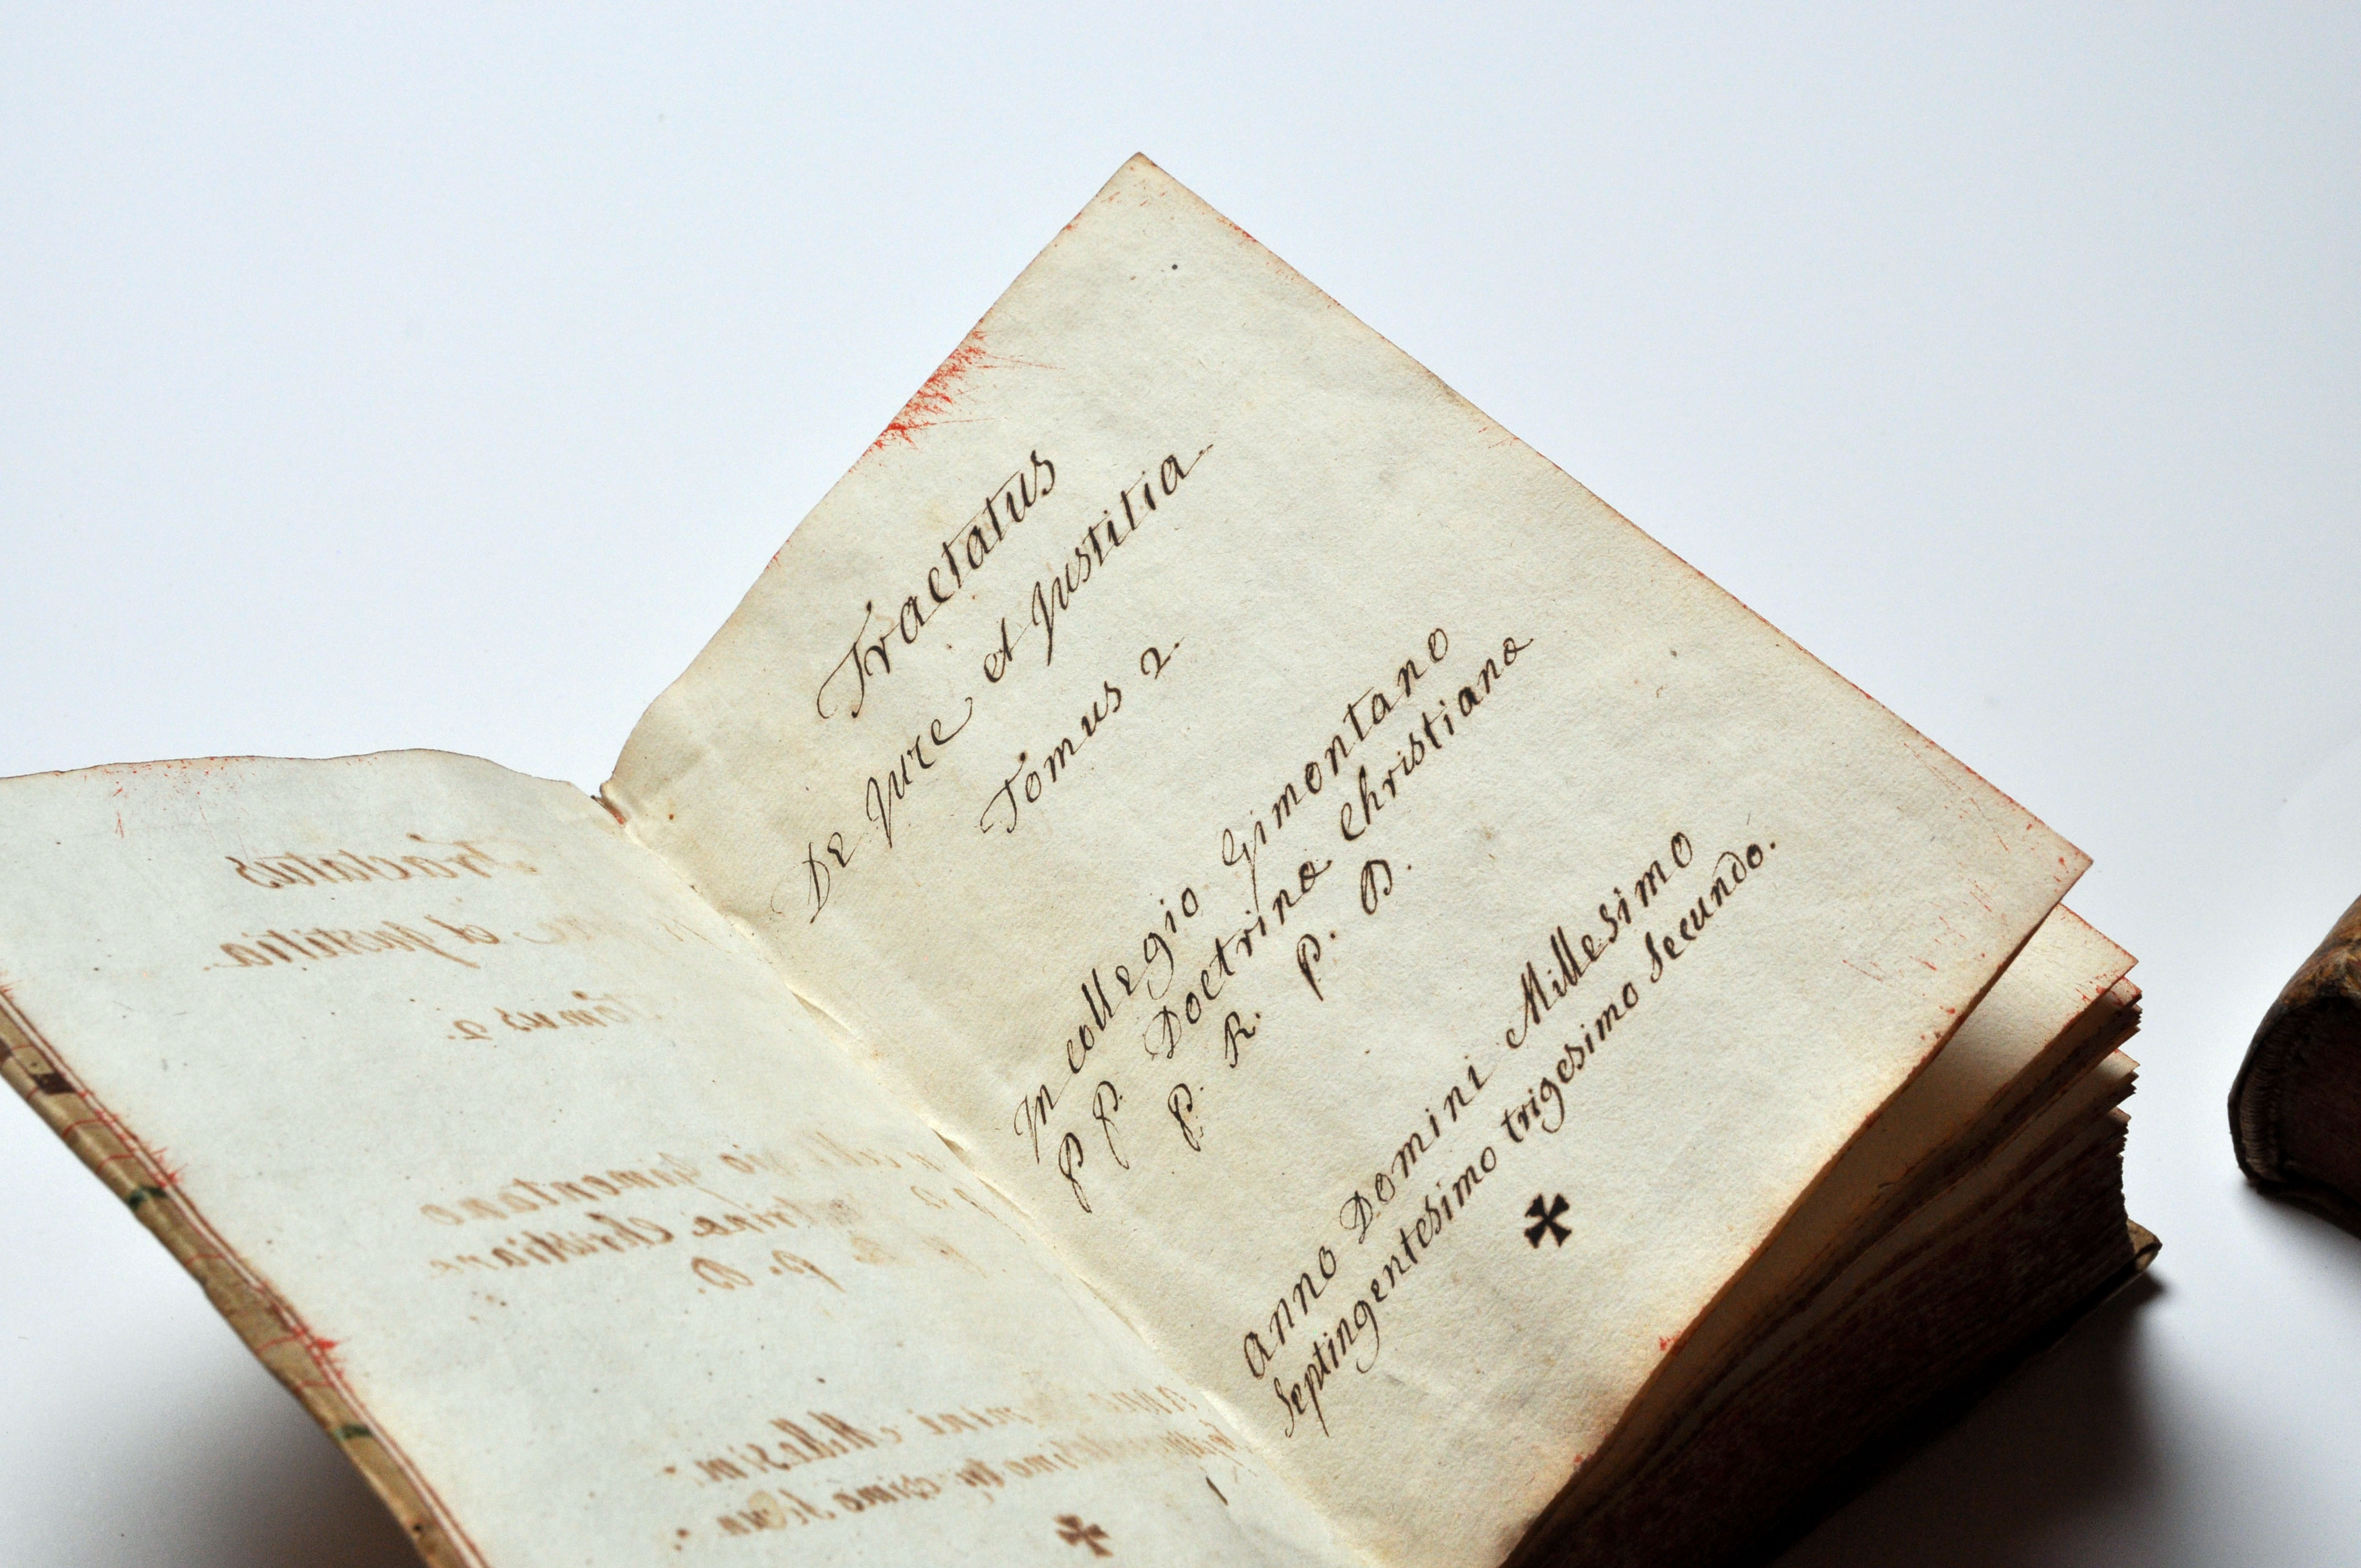 Tractatus
De Jure et Justitia
Tomus 2.
In collegio Gimontano
P P. Doctrinæ Christianæ
P. R. P. D.
Anno Domini Millesimo
Septingentesimo trigesimo Secundo.